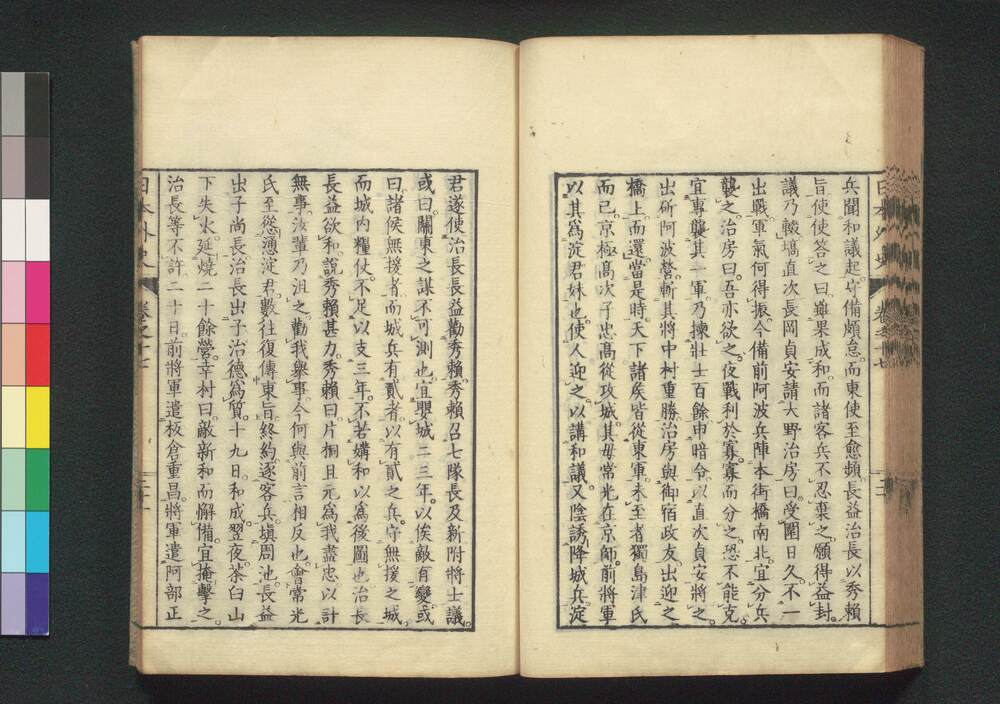 兵聞和議起。守備頗怠。而東使至愈頻。長益治長以秀賴
旨使使答之曰。雖果成和。而諸客兵不忍棄之。願得益封。
議乃輟。塙直次長岡貞安請大野治房曰。受圍日久。不一
出戰。軍氣何得振。今備前阿波兵陣本街橋南北。宜分兵
襲之。治房曰。吾亦欲之。夜戰利於寡。寡而分之。恐不能克。
宜專襲其一軍。乃揀壯士百餘。申暗令。以直次貞安將之。
出斫阿波營。斬其將中村重勝。治房與御宿政友。出迎之
橋上。而還。當是時。天下諸侯皆從東軍。未至者獨島津氏
而已。京極高次子忠高從攻城。其母常光在京師。前將軍
以其爲淀君妹也。使人迎之。以講和議。又陰誘降城兵。淀
君遂使治長長益勸秀賴。秀賴召七隊長及新附將士議。
或曰。關東之謀不可測也。宜嬰城二三年。以俟敵有變。或
曰。諸侯無援者。而城兵有貳者。以有貳之兵。守無援之城。
而城內糧仗。不足以支三年。不若媾和以爲後圖也。治長
長益欲和。說秀賴甚力。秀賴曰。片桐且元爲我盡忠以計
無事。汝輩乃沮之。勸我舉事。今何與前言相反也。會常光
氏至。慫慂淀君。數往復傳東旨。終約逐客兵。塡周池。長益
出子尚長。治長出子治德爲質。十九日。和成。翌夜。茶臼山
下失火。延燒二十餘營。幸村曰。敵新和而懈備。宜掩擊之。
治長等不許。二十日。前將軍遣板倉重昌。將軍遣阿部正
日本外史 卷之十七